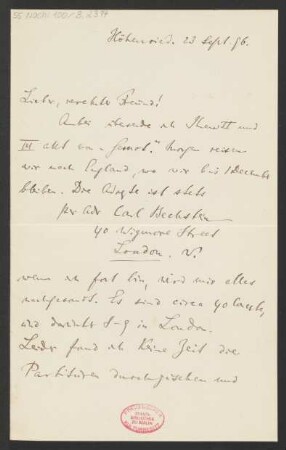 55 Nachl 100/B, 2379
Höhenried. 23 Sept 96.
Lieber, verehrter Freund!
Anbei übersende ich Ihnen II und
III akt von „Gernot." Morgen reisen
wir nach England, wo wir bis 1 December
bleiben. Die Adresse ist stets
per Adr Carl Bechstein
40 Wigmore Street
London. W.
wenn ich fort bin, wird mir alles
nachgesandt. Es sind circa 40 Concerte,
und darunter 8-9 in London.
Leider fand ich keine Zeit die
Partituren durchzusehen und